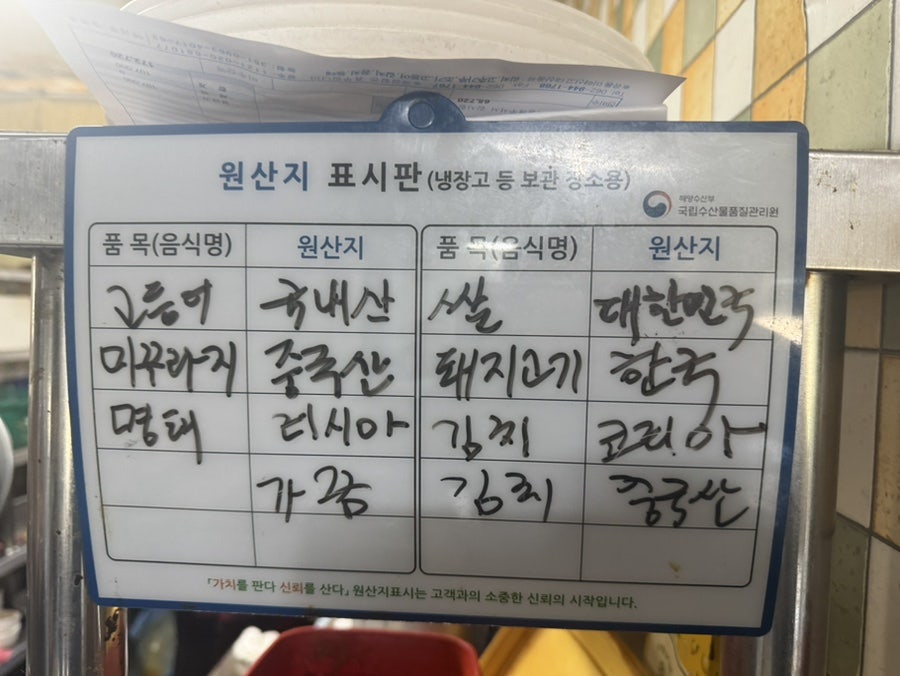 원산지 표시판 (냉장고 등 보관 장소용)
해양수산부
국립수산물품질관리원
품 목(음식명) 원산지 품 목(음식명) 원산지
고등어 국내산 쌀 대한민국
미꾸라지 중국산 돼지고기 한국
명태 러시아 김치 코리아
가끔 김치 중국산
「가치를 판다 신뢰를 산다」 원산지표시는 고객과의 소중한 신뢰의 시작입니다.